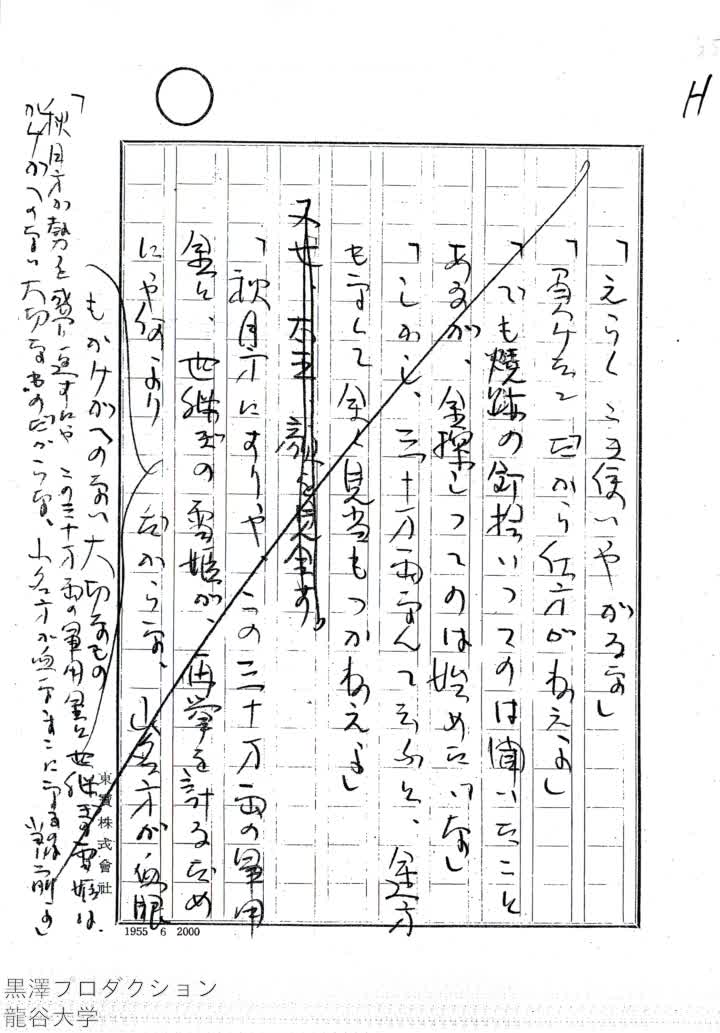 H
「えらくこき使いやがるな」
「負けたんだから仕方がねえよ」
「でも焼跡の釘拾いってのは聞いたこと
あるが、金探しってのは始めだな」
「しかし、三十万両なんて云ふと、途方
もなくて全く見当もつかねえよ」
又七、太平、顔を見合す。
「秋月方にすりゃ、この三十万両の軍用
金と、世継ぎの雪姫が、再挙を計るため
にや何より だからな、山名方が血眼
もかけがへのない大切なもの
「秋月方が勢を盛り返すにやこの三十万両の軍用金と世継ぎの雪姫は、
かけがへのない大切なものだからな、山名方が血まなこになるのは当り前よ」
東寶株式會社
1955 6 2000
黒澤プロダクション
龍谷大学